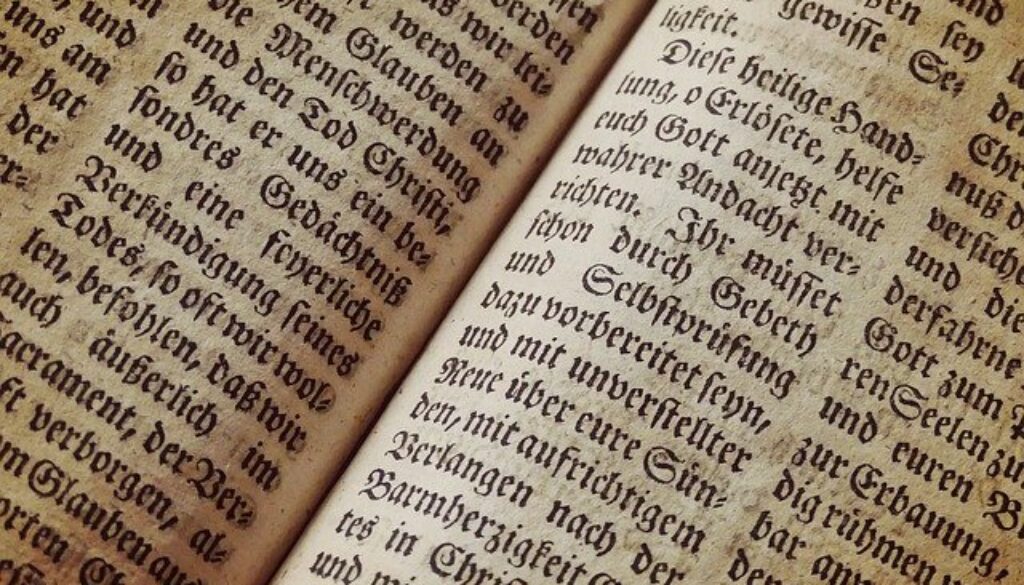 und
uns am
hat
der
er=
werden
wir lei=
werden zu
em Glauben an
die Menschwerdung
und den Tod Christi,
so hat er uns ein be=
sondres Gedächtniß
und eine feyerliche
Verkündigung seines
Todes, so oft wir wol=
len, befohlen, daß wir
auch äußerlich im
acrament, der Ver=
ft verborgen, al=
m Glauben aus
orten Ch
gewisse Se=
ligkeit.
Diese heilige Hand=
lung, o Erlösete, helfe
euch Gott anjetzt mit
wahrer Andacht ver=
richten. Ihr müsset
schon durch Gebeth
und Selbstprüfung
dazu vorbereitet seyn,
und mit unverstellter
Reue über eure Sün=
den, mit aufrichtigem
Verlangen nach der
Barmherzigkeit
tes in Chris
und mi
und
sey
de
Chr
nuß d
versiche
und die
derfahrne
Gott zum
ren Seelen zu
und euren
zur Erbauung,
dig rühmen
bar
der